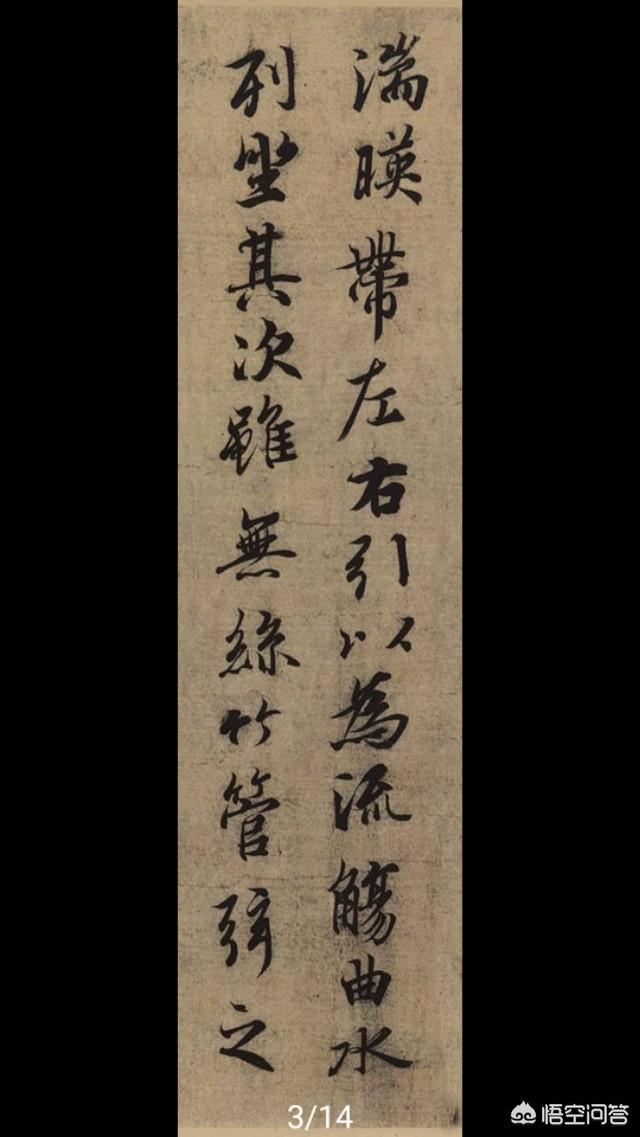 湍暎帶左右引以為流觴曲水
列坐其次雖無絲竹管弦之
3/14
悟空问答